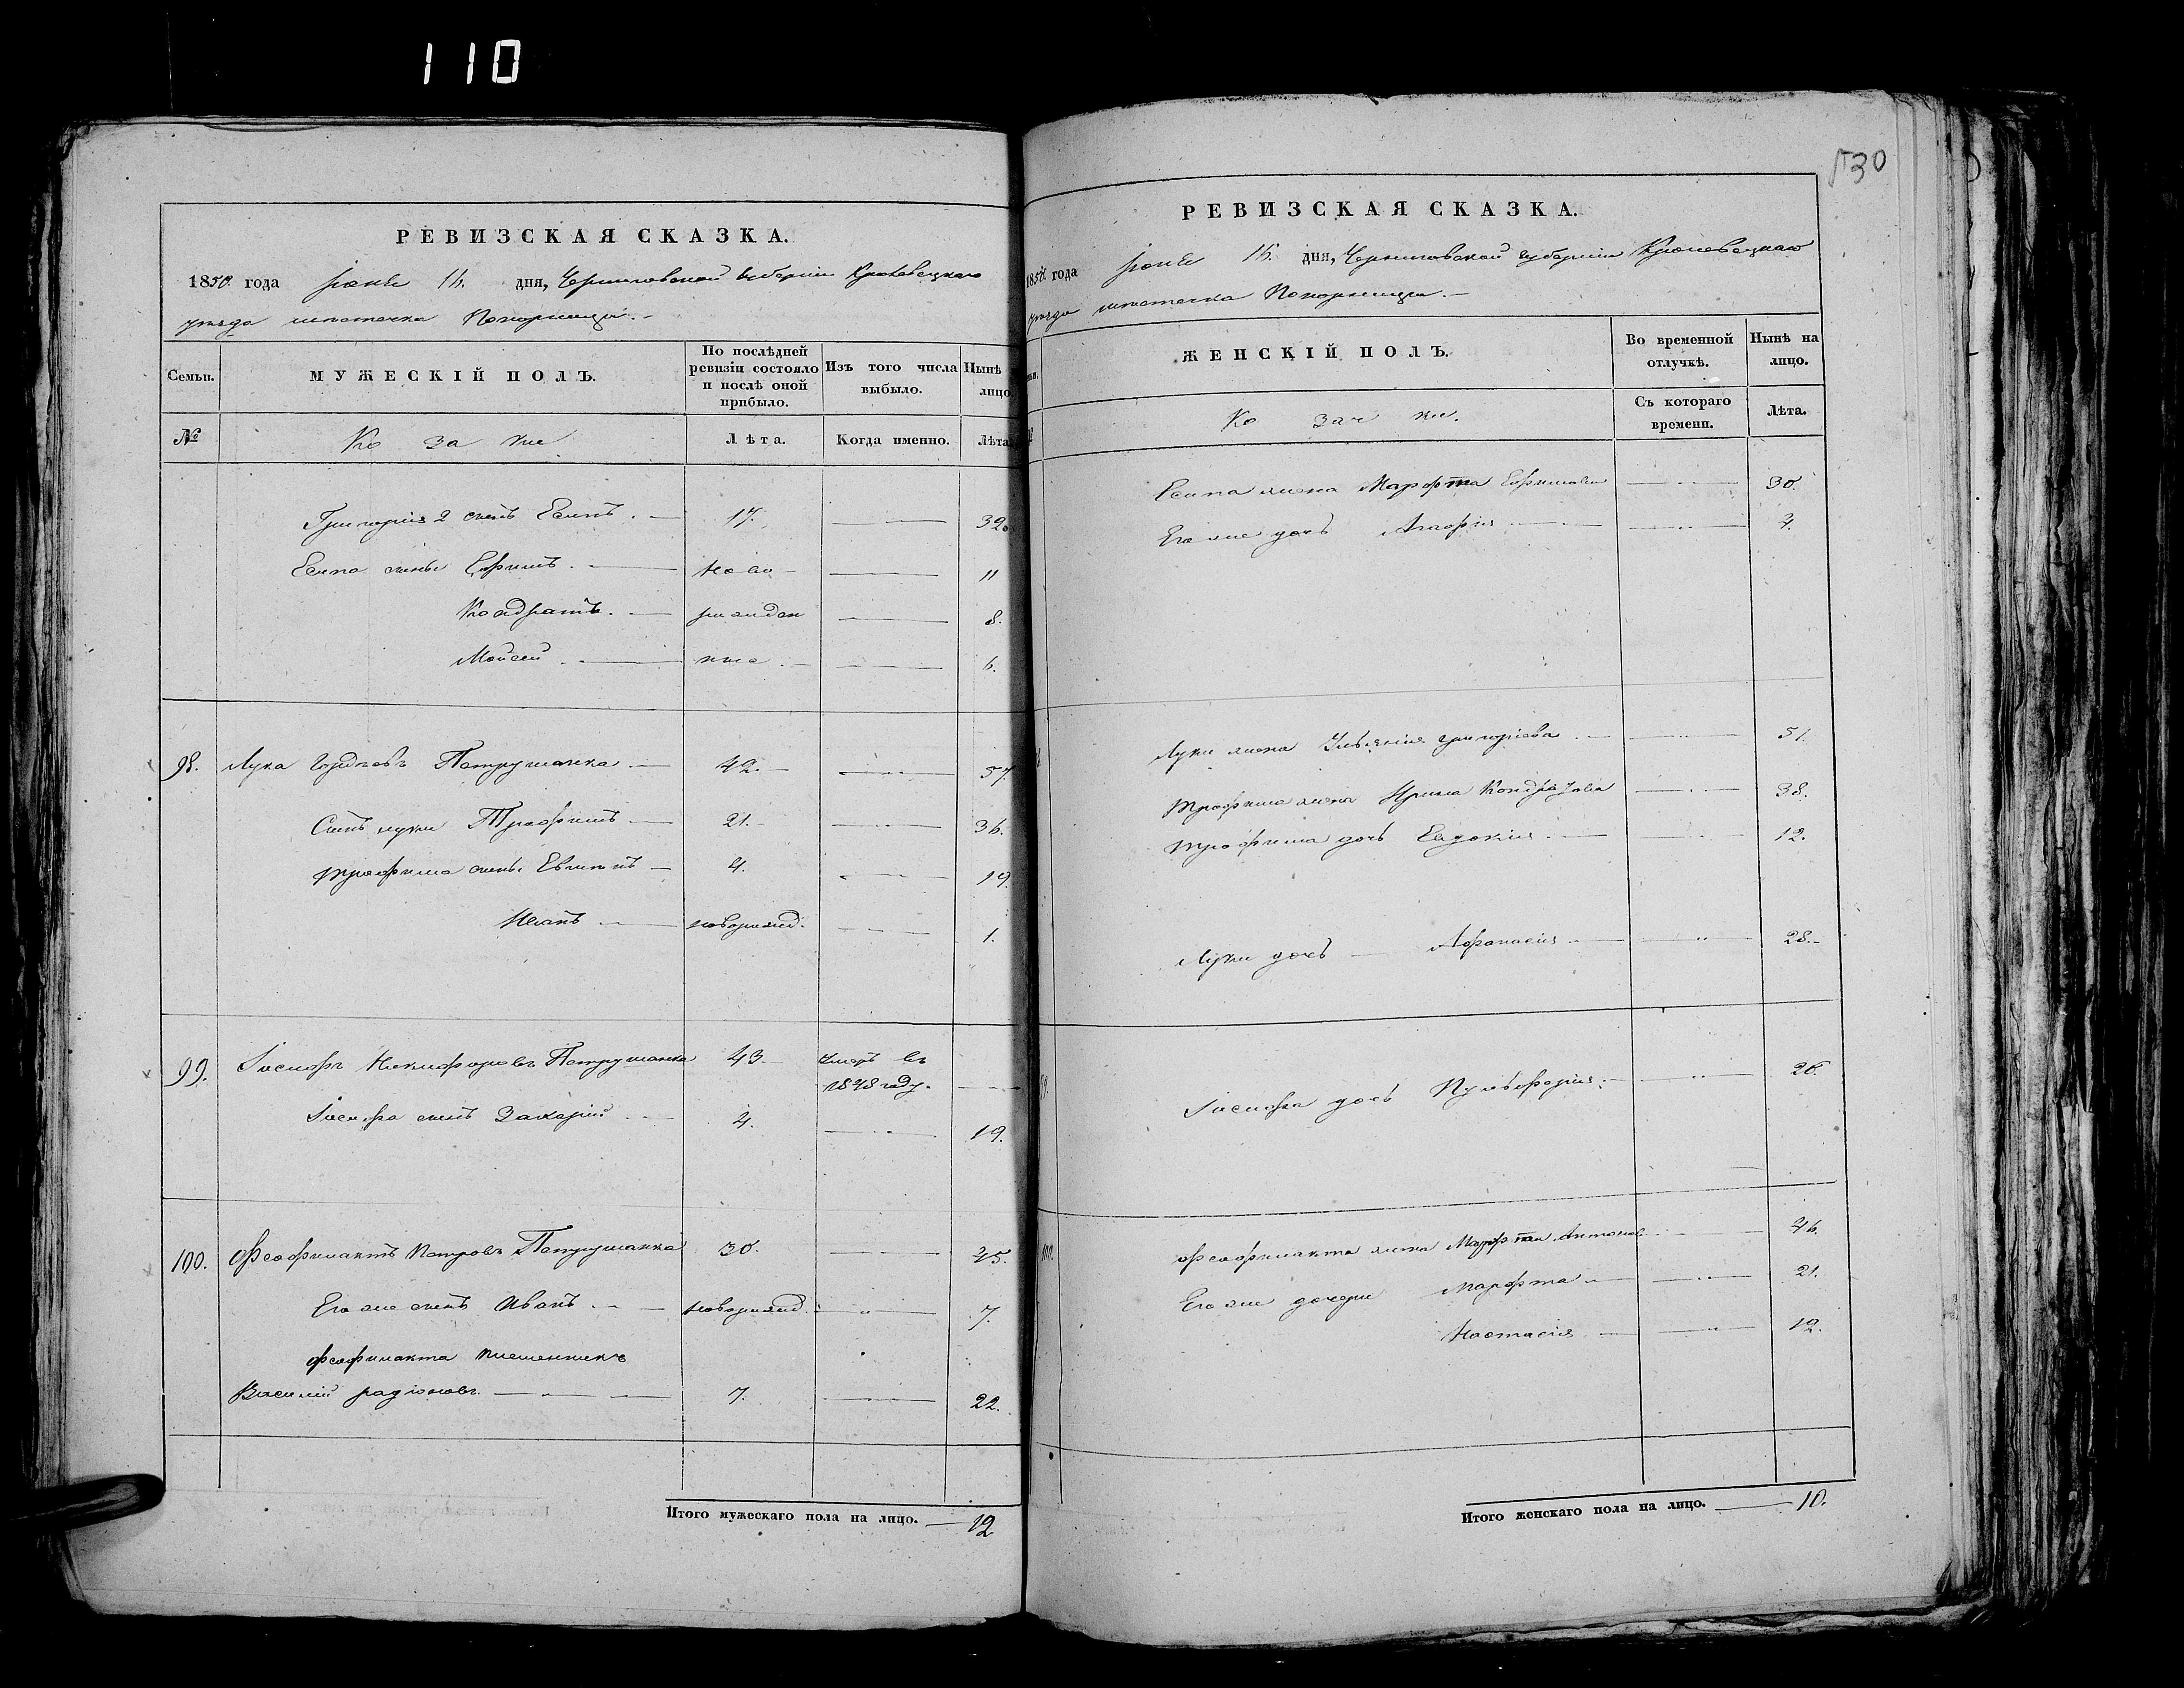 110
530
РЕВИЗСКАЯ СКАЗКА.
1850. года Іюня 16. дня, Черниговской губерніи Кролевецкаго
уѣзда мѣстечка Понорницы. -
Семьи.
МУЖЕСКІЙ ПОЛЪ.
По послѣдней ревизіи состояло и послѣ оной прибыло.
Изъ того числа выбыло.
Нынѣ лицо.
№
Ко за ки
Лѣта.
Когда именно.
Лѣта
Григорія 2 сынъ Есипъ. 17. 32.
Есипа сыны Ефимъ. ново 11
Кондратъ. рожден 8.
Мойсей ные 6.
98. Лука Гордѣевъ Петрушанка 42. 57.
Сынъ луки Трофимъ 21. 36.
трофима сыны 4. 19.
Иванъ новорожд. 1.
99. Іосифъ Никифоровъ Петрушанка 43. Умеръ въ
1848 году.
Іосифа сынъ Захарій 4. 19.
100. Феофилактъ Петровъ Петрушанка 30. 45.
Его же сынъ Иванъ новорожд. 7.
феофилакта племенникъ
Василій радіоновъ. 7. 22.
Итого мужескаго пола на лицо. 12
РЕВИЗСКАЯ СКАЗКА.
1850. года Іюня 16. дня, Черниговской губерніи Кролевецкаго
уѣзда мѣстечка Понорницы. -
ЖЕНСКІЙ ПОЛЪ.
Во временной отлучкѣ.
Нынѣ на лицо.
Ко зач ки.
Съ котораго времени.
Лѣта.
Есипа жена Марфта Ефимова 30.
Его же дочь Агафія 4.
Луки жена Григоріева 51.
трофима жена Ирина Кондратова 38.
трофима дочь Евдокія 12.
Луки дочь Афанасія 28.
99. Іосифа дочь 26.
100. феофилакта жена Марфта Антонов 46.
Его же дочери Марфта 21.
Настасія 12.
Итого женскаго пола на лицо. 10.